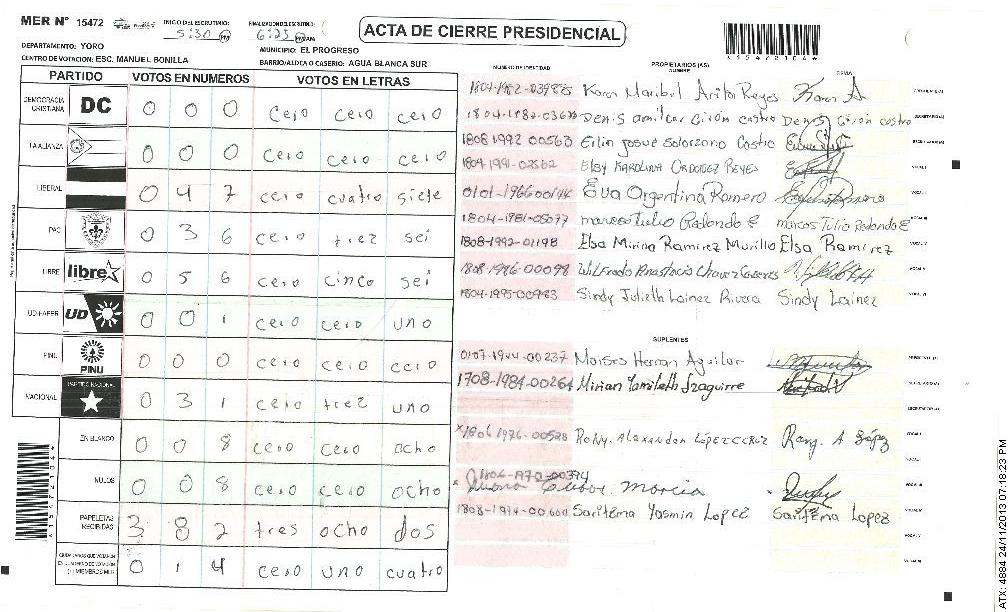 MER N° 15472
INICIO DEL ESCRUTINIO: 5:30 PM
FINALIZACION DEL ESCRUTINIO: 6:23 PM
ACTA DE CIERRE PRESIDENCIAL
*15472104*
DEPARTAMENTO: YORO
MUNICIPIO: EL PROGRESO
CENTRO DE VOTACION: ESC. MANUEL BONILLA
BARRIO/ALDEA O CASERIO: AGUA BLANCA SUR
PARTIDO VOTOS EN NUMEROS VOTOS EN LETRAS
DEMOCRACIA CRISTIANA DC 0 0 0 cero cero cero
LA ALIANZA 0 0 0 cero cero cero
LIBERAL 0 4 7 cero cuatro siete
PAC 0 3 6 cero trez sei
LIBRE libre 0 5 6 cero cinco sei
UD-FAPER UD 0 0 1 cero cero uno
PINU PINU 0 0 0 cero cero cero
NACIONAL PARTIDO NACIONAL 0 3 1 cero trez uno
EN BLANCO 0 0 8 cero cero ocho
NULOS 0 0 8 cero cero ocho
PAPELETAS RECIBIDAS 3 8 2 tres ocho dos
CIUDADANOS QUE VOTARON EN CUADERNO DE VOTACION (+) MIEMBROS MER 0 1 4 cero uno cuatro
NUMERO DE IDENTIDAD PROPIETARIOS (AS) NOMBRE FIRMA
1804-1982-03988 Karen Maribel Arita Reyes Karen A PRESIDENTE (A)
Denis amilcar Girón castro Denis Giron castro SECRETARIO (A)
1808 1992 00563 Erlin josue Solorzano Castro ESCRUTADOR (A)
1804-1991-02562 Elsy KAROLINA ORDOÑEZ REYES VOCAL I
0101-1966 00144 Eva Argentina Romero VOCAL II
1804-1981-05077 marcos Tulio Redondo E marcos Tulio Redondo E VOCAL III
1808-1992-01198 Elsa Mirina Ramirez Murillo Elsa Ramirez VOCAL IV
1808-1986-00098 Wilfredo Anastacio Chavez Caseres VOCAL V
1804-1995-00983 Sindy Julieth Lainez Rivera Sindy Lainez VOCAL VI
SUPLENTES
0107-1944-00237 Moises Hernan Aguilar PRESIDENTE (A)
1708-1984-00264 Mirian Yamileth Izaguirre SECRETARIO (A)
ESCRUTADOR (A)
1806 1976-00528 Rony. Alexander López CCRUZ Rony. A López VOCAL I
VOCAL II
Murcia VOCAL III
1808-1974-00600 Saritema Yasmin Lopez Saritema Lopez VOCAL IV
VOCAL V
VOCAL VI
*15472104*
ATX: 4884 24/11/2013 07:18:23 PM